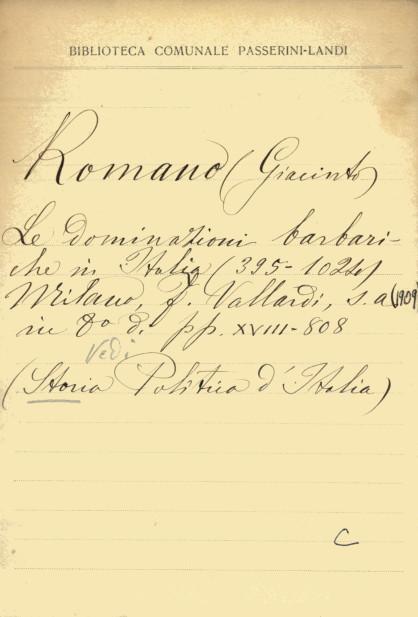 BIBLIOTECA COMUNALE PASSERINI-LANDI
Romano (Giacinto)
Le dominazioni barbari-
che in Italia (395-1024)
Milano, F. Vallardi, s.a (1909)
in 8º d. pp. XVIII-808
Vedi
(Storia Politica d'Italia)
C